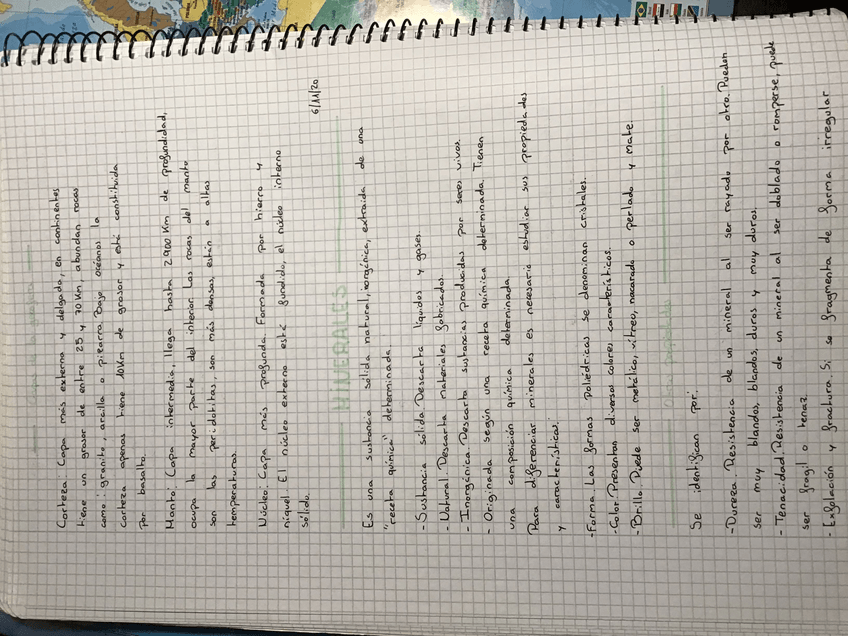 Corteza: Capa más externa y delgada, en continentes
tiene un grosor de entre 25 y 70 Km, abundan rocas
como: granito, arcilla o pizarra. Bajo océanos la
corteza apenas tiene 10 Km de grosor y está constituida
por basalto.
Manto: Capa intermedia, llega hasta 2.900 Km de profundidad,
ocupa la mayor parte del interior. Las rocas del manto
son las peridotitas, son más densas, están a altas
temperaturas.
Núcleo: Capa más profunda. Formada por hierro y
níquel. El núcleo externo está fundido, el núcleo interno
sólido.
6/11/20
MINERALES
Es una sustancia sólida natural, inorgánica, extraida de una
"receta química" determinada
- Sustancia sólida. Descarta líquidos y gases.
- Natural. Descarta materiales fabricados.
- Inorgánica. Descarta sustancias producidas por seres vivos.
- Originada según una receta química determinada. Tienen
una composición química determinada
Para diferenciar minerales es necesario estudiar sus propiedades
y características:
- Forma. Las formas poliédricas se denominan cristales.
- Color. Presentan diversos colores característicos.
- Brillo. Puede ser metálico, vítreo, nacarado o perlado y mate.
Se identifican por:
- Dureza. Resistencia de un mineral al ser rayado por otro. Pueden
ser muy blandos, blandos, duros y muy duros.
- Tenacidad. Resistencia de un mineral al ser doblado o romperse, puede
ser fragil o tenaz.
- Exfolación y fractura. Si se fragmenta de forma irregular